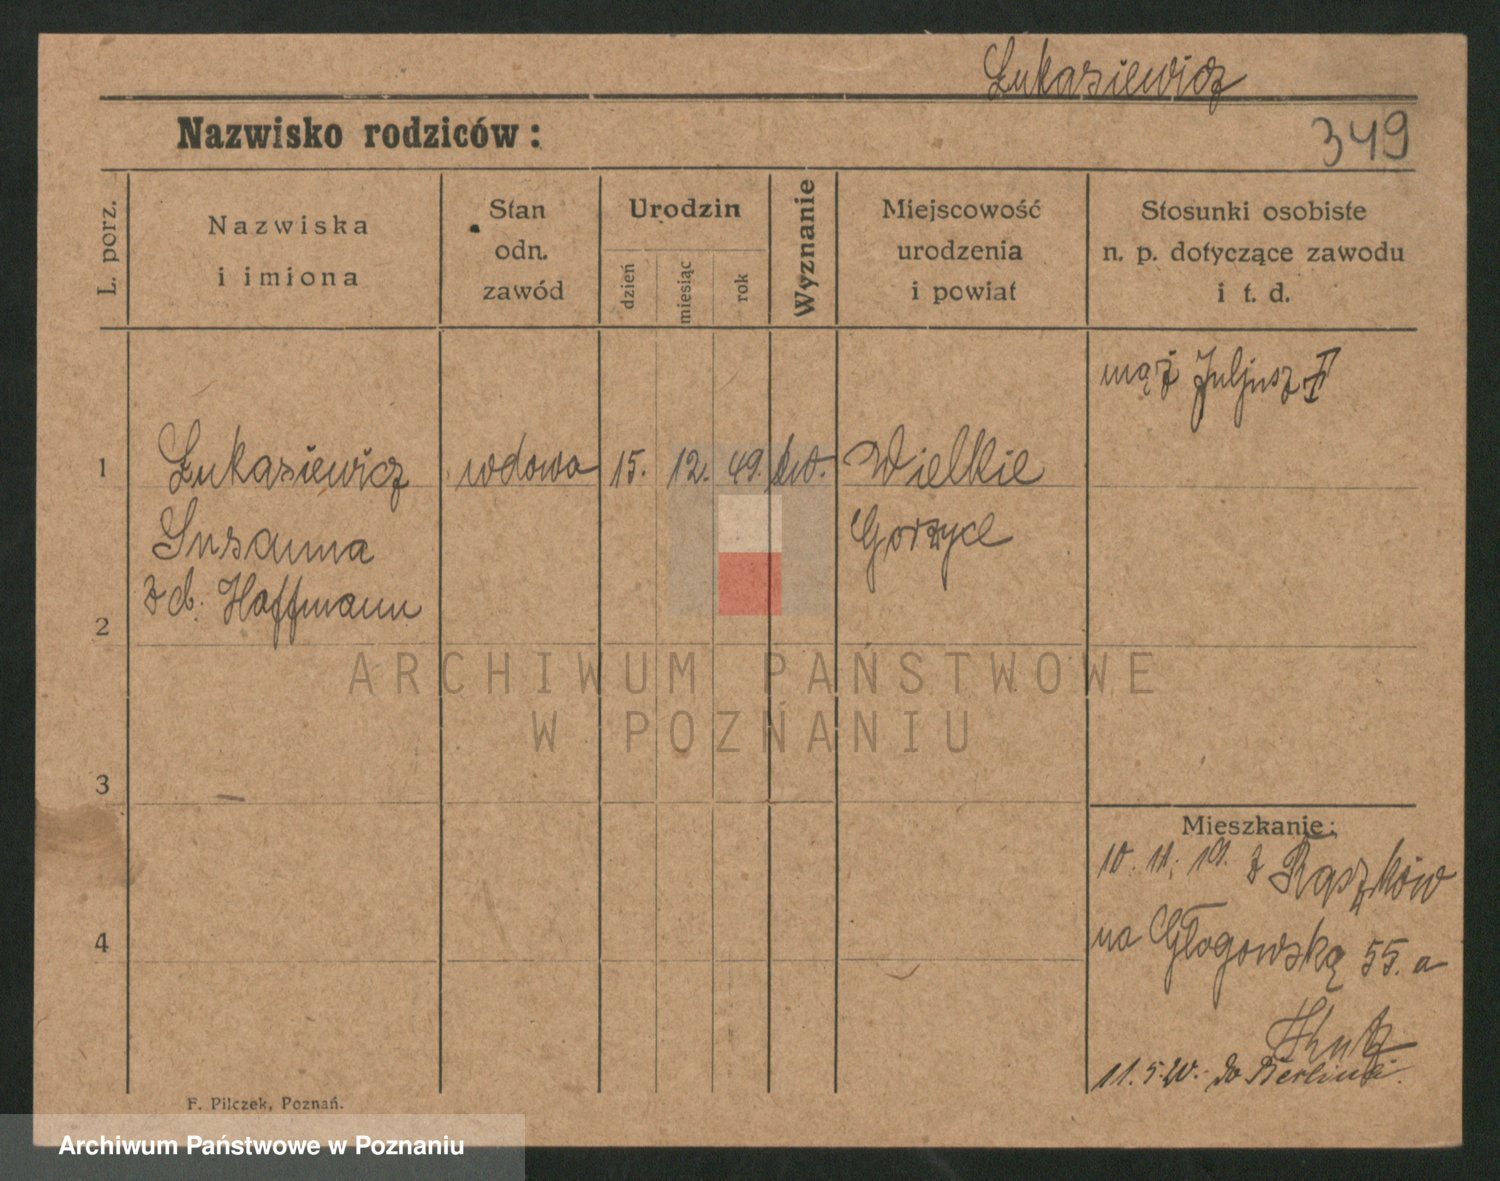 Łukasiewicz
Nazwisko rodziców:
349
L. porz.
Nazwiska
i imiona
Stan
odn.
zawód
Urodzin
dzień
miesiąc
rok
Wyznanie
Miejscowość
urodzenia
i powiat
Stosunki osobiste
n. p. dotyczące zawodu
i t. d.
mąż Juljusz
1
Łukasiewicz wdowa 15. 12. 49. Wielkie
Susanna Gorzyce
z d. Hoffmann
2
ARCHIWUM PAŃSTWOWE
W POZNANIU
3
4
Mieszkanie:
10. 11. 19. z Rąszków
na Głogowską 55. a
11. 5. 20. do Berlina.
F. Pilczek, Poznań.
Archiwum Państwowe w Poznaniu